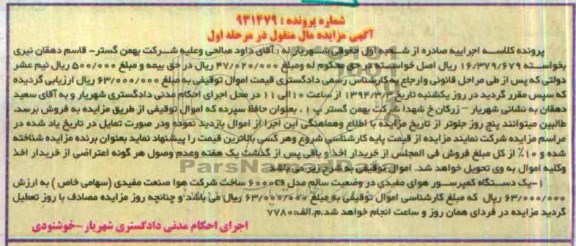 شماره پرونده : ۹۳۱۴۷۹
آگهی مزایده مال منقول در مرحله اول
پرونده کلاسه اجراییه صادره از شعبه اول حقوقی شهریار له : آقای داود صالحی وعلیه شرکت بهمن گستر- قاسم دهقان نیری
بخواسته ۱۶/۳۷۹/۶۷۹ ریال اصل خواسته در حق محکوم له ومبلغ ۴۷/۰۲۰/۰۰۰ ریال در حق بیمه و مبلغ ۵۰۰/۰۰۰ ریال نیم عشر
دولتی که پس از طی مراحل قانونی وارجاع به کارشناس رسمی دادگستری قیمت اموال توقیفی به مبلغ ۶۳/۰۰۰/۰۰۰ ریال ارزیابی گردیده
که سپس مقرر گردید در روز یکشنبه تاریخ ۱۳۹۴/۳/۳ از ساعت ۱۰ الی ۱۱ در محل اجرای احکام مدنی دادگستری شهریار و به آقای سعید
دهقان به نشانی شهریار – رزکان خ شهدا شرکت بهمن گستر پ ۱ ، بعنوان حافظ سپرده که اموال توقیفی از طریق مزایده به فروش برسد.
طالبین میتوانند پنج روز جلوتر از تاریخ مزایده با اطلاع وهماهنگی این اجرا از اموال بازدید نموده ودر صورت تمایل در تاریخ یاد شده در
مراسم مزایده شرکت نمایند مزایده از قیمت پایه کارشناسی شروع وهر کسی بالاترین قیمت را پیشنهاد نماید بعنوان برنده مزایده شناخته
شده و ۱۰٪ از کل مبلغ فروش فی المجلس از خریدار اخذ و باقی پس از گذشت یک هفته وعدم وصول هر گونه اعتراضی از خریدار اخذ
وکلیه اموال به وی تحویل خواهد شد. اموال توقیفی به شرح زیر می باشد
۱-یک دستگاه کمپرسور هوای مفیدی در وضعیت سالم مدل ۶۰۰۰cs ساخت شرکت هوا صنعت مفیدی (سهامی خاص ) به ارزش
۶۳/۰۰۰/۰۰۰ ریال که مبلغ کارشناسی اموال توقیفی به مبلغ ۶۳/۰۰۰/۰۰۰ ریال می باشد و چنانچه روز مزایده مصادف با روز تعطیل
گردید مزایده در فردای همان روز و ساعت انجام خواهد شد.م.الف۷۷۸۰
اجرای احکام مدنی دادگستری شهریار-خوشنودی